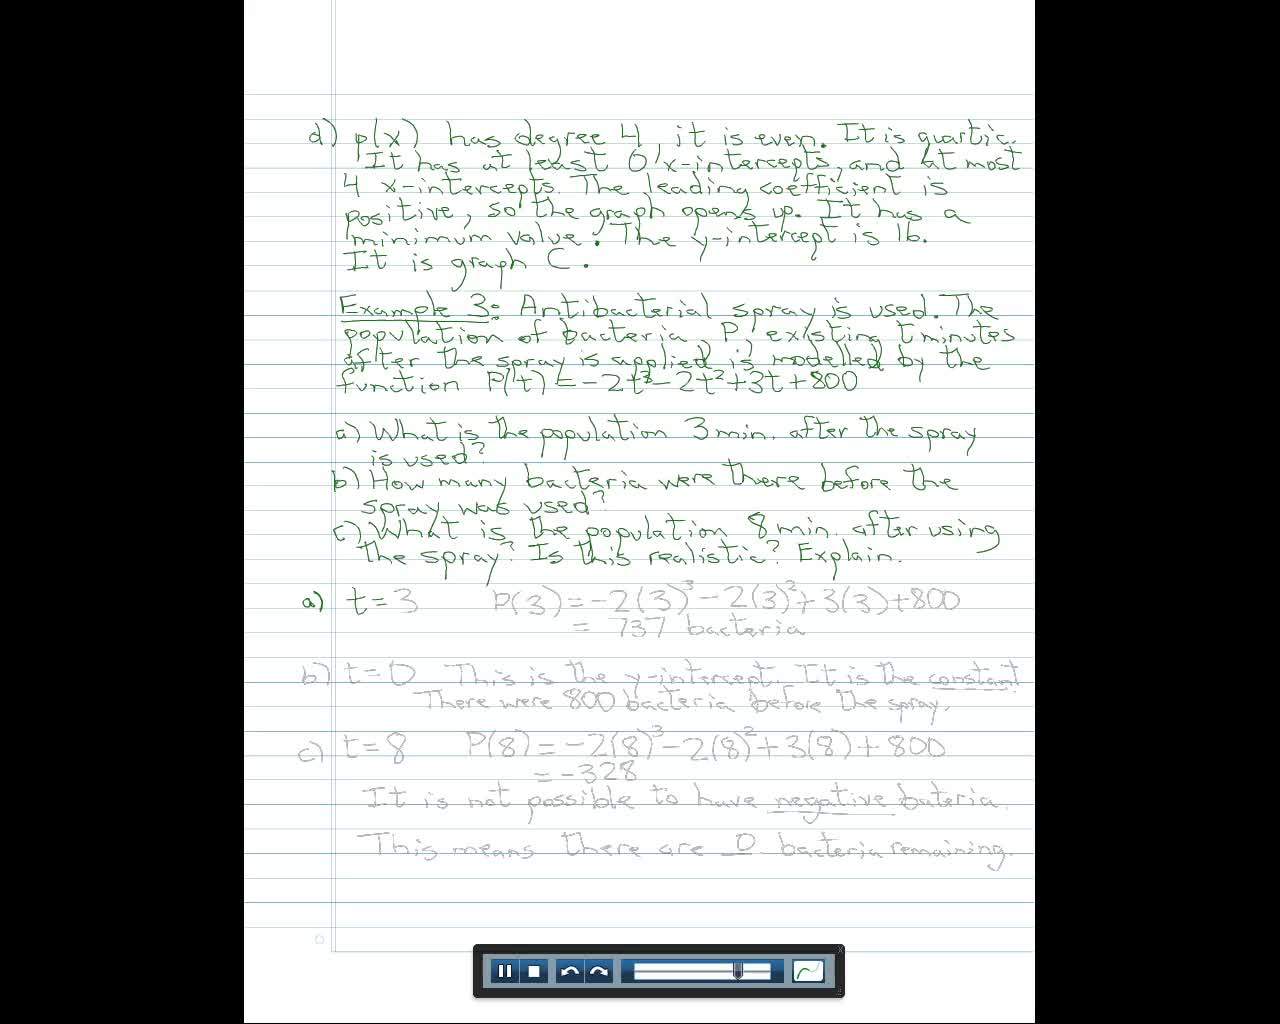 d) p(x) has degree 4, it is even. It is quartic.
It has at least 0 x-intercepts, and at most
4 x-intercepts. The leading coefficient is
positive, so the graph opens up. It has a
minimum value. The y-intercept is 16.
It is graph C.
Example 3: Antibacterial spray is used. The
population of bacteria, P, existing t minutes
after the spray is applied is modelled by the
function P(t) = -2t³ - 2t² + 3t + 800
a) What is the population 3 min. after the spray
is used?
b) How many bacteria were there before the
spray was used?
c) What is the population 8 min. after using
the spray? Is this realistic? Explain.
a) t = 3 P(3) = -2(3)³ - 2(3)² + 3(3) + 800
= 737 bacteria
b) t = 0 This is the y-intercept. It is the constant!
There were 800 bacteria before the spray.
c) t = 8 P(8) = -2(8)³ - 2(8)² + 3(8) + 800
= -328
It is not possible to have negative bateria.
This means there are 0 bacteria remaining.